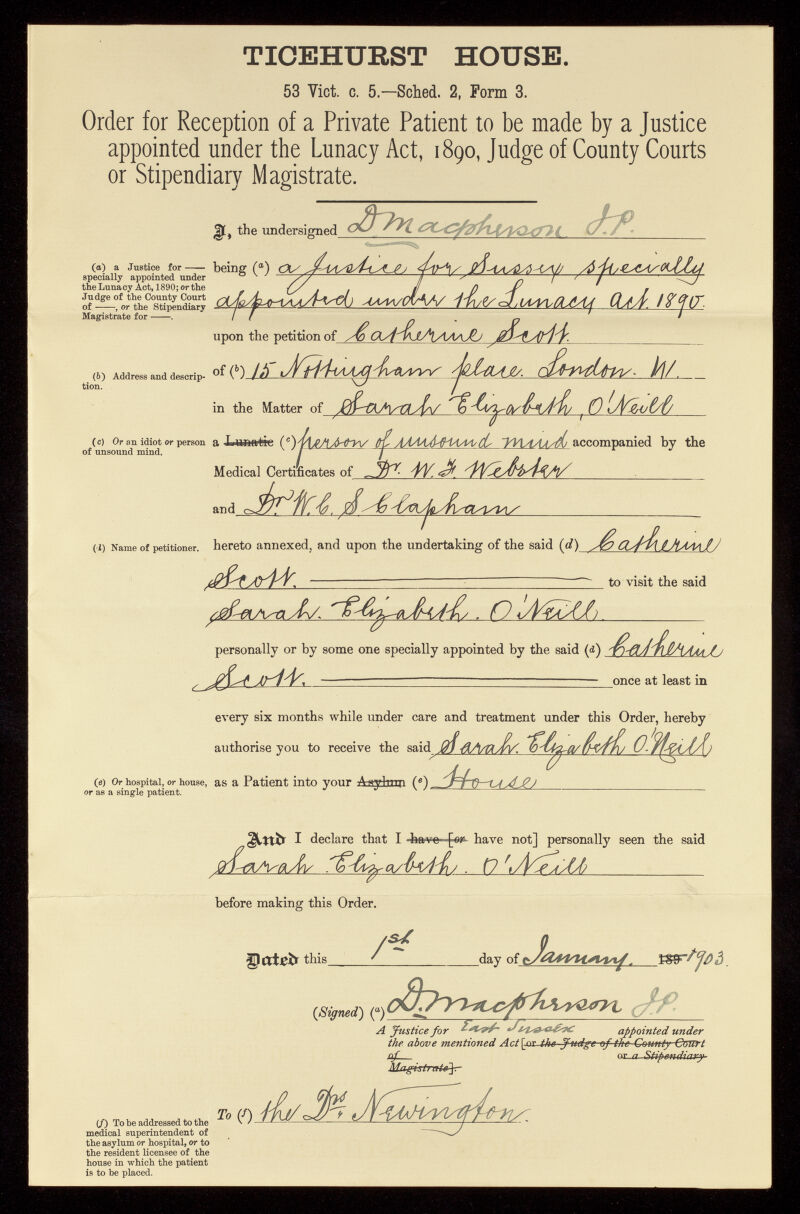 TICEHURST HOUSE.
53 Vict. c. 5.—Sched. 2, Form 3.
Order for Reception of a Private Patient to be made by a Justice
appointed under the Lunacy Act, 1890, Judge of County Courts
or Stipendiary Magistrate.
I, the undersigned D. Macpherson J.P.
(a) a Justice for ——
specially appointed under
the Lunacy Act, 1890; or the
Judge of the County Court
of ——, or the Stipendiary
Magistrate for ——.
being (a) a Justice for Sussex specially
appointed under the Lunacy Act. 1890.
upon the petition of Catherine Scott.
(b) Address and descrip-
tion.
of (b) 15 Nottingham place. London. W.
in the Matter of Sarah Elizabeth, O'Neill
(c) Or an idiot or person
of unsound mind.
a Lunatic (c) person of unsound mind accompanied by the
Medical Certificates of Dr. W. F. Webster
and Dr. W. C. S Clapham
(d) Name of petitioner.
hereto annexed, and upon the undertaking of the said (d) Catherine
Scott. ——— to visit the said
Sarah. Elizabeth. O'Neill.
personally or by some one specially appointed by the said (d) Catherine
Scott. ——— once at least in
every six months while under care and treatment under this Order, hereby
authorise you to receive the said Sarah. Elizabeth O'Neill
(e) Or hospital, or house,
or as a single patient.
as a Patient into your Asylum (e) House
And I declare that I have [or have not] personally seen the said
Sarah. Elizabeth. O'Neill
before making this Order.
Dated this 1st day of January. 189 1903.
(Signed) (a) D. Macpherson J.P.
A Justice for East Sussex appointed under
the above mentioned Act [or the Judge of the County Court
of or a Stipendiary
Magistrate].
To (f) the Drs. Newington.
(f) To be addressed to the
medical superintendent of
the asylum or hospital, or to
the resident licensee of the
house in which the patient
is to be placed.